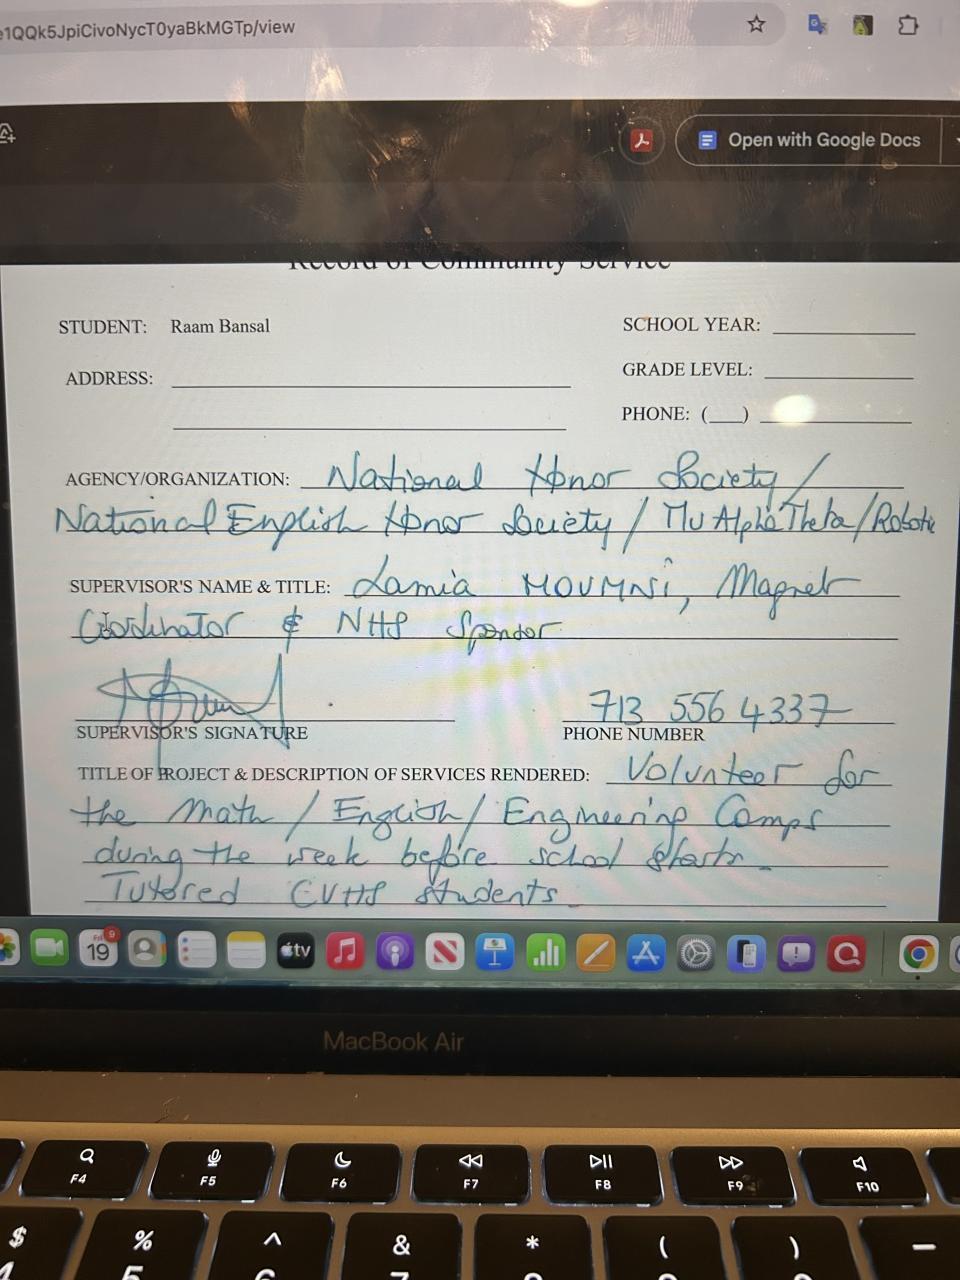 e1QQk5JpiCivoNycT0yaBkMGTp/view
Open with Google Docs
Record of Community Service
STUDENT: Raam Bansal
SCHOOL YEAR:
ADDRESS:
GRADE LEVEL:
PHONE: (___)
AGENCY/ORGANIZATION: National Honor Society/
National English Honor Society / Mu Alpha Theta/Robotic
SUPERVISOR'S NAME & TITLE: Lamia MOUMNi, Magnet
Coordinator & NHS Sponsor
SUPERVISOR'S SIGNATURE
713 556 4337
PHONE NUMBER
TITLE OF PROJECT & DESCRIPTION OF SERVICES RENDERED: Volunteer for
the Math / English / Engineering Camps
during the week before school starts.
Tutored CVHS students.
19
9
tv
MacBook Air
F4 F5 F6 F7 F8 F9 F10
$ % ^ & * ( ) –